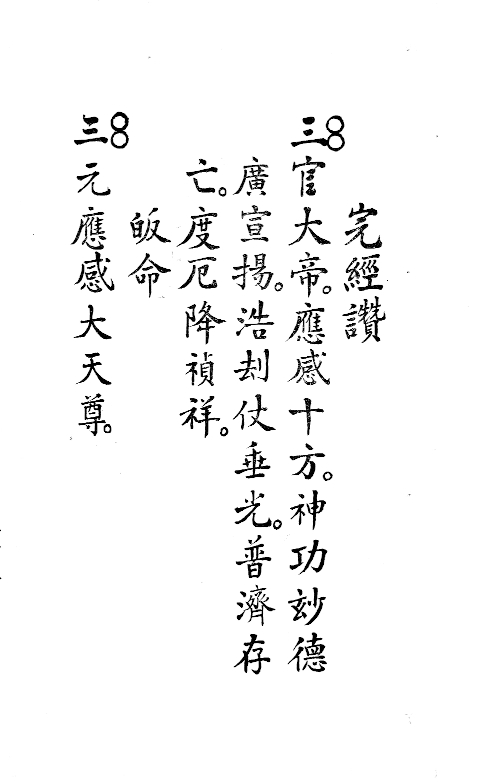 完經讚
三官大帝。應感十方。神功玅德
廣宣揚。浩刦仗垂光。普濟存
亡。度厄降禎祥。
皈命
三元應感大天尊。